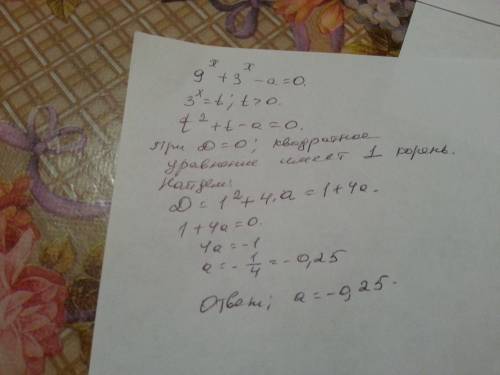 9^x + 3^x - a = 0.
3^x = t; t > 0.
t^2 + t - a = 0.
При D = 0; квадратное
уравнение имеет 1 корень.
Найдем:
D = 1^2 + 4·a = 1 + 4a.
1 + 4a = 0.
4a = -1
a = -1/4 = -0,25
Ответ; a = -0,25.